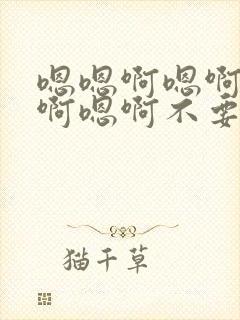 嗯嗯啊嗯啊
啊嗯啊不要
猫千草